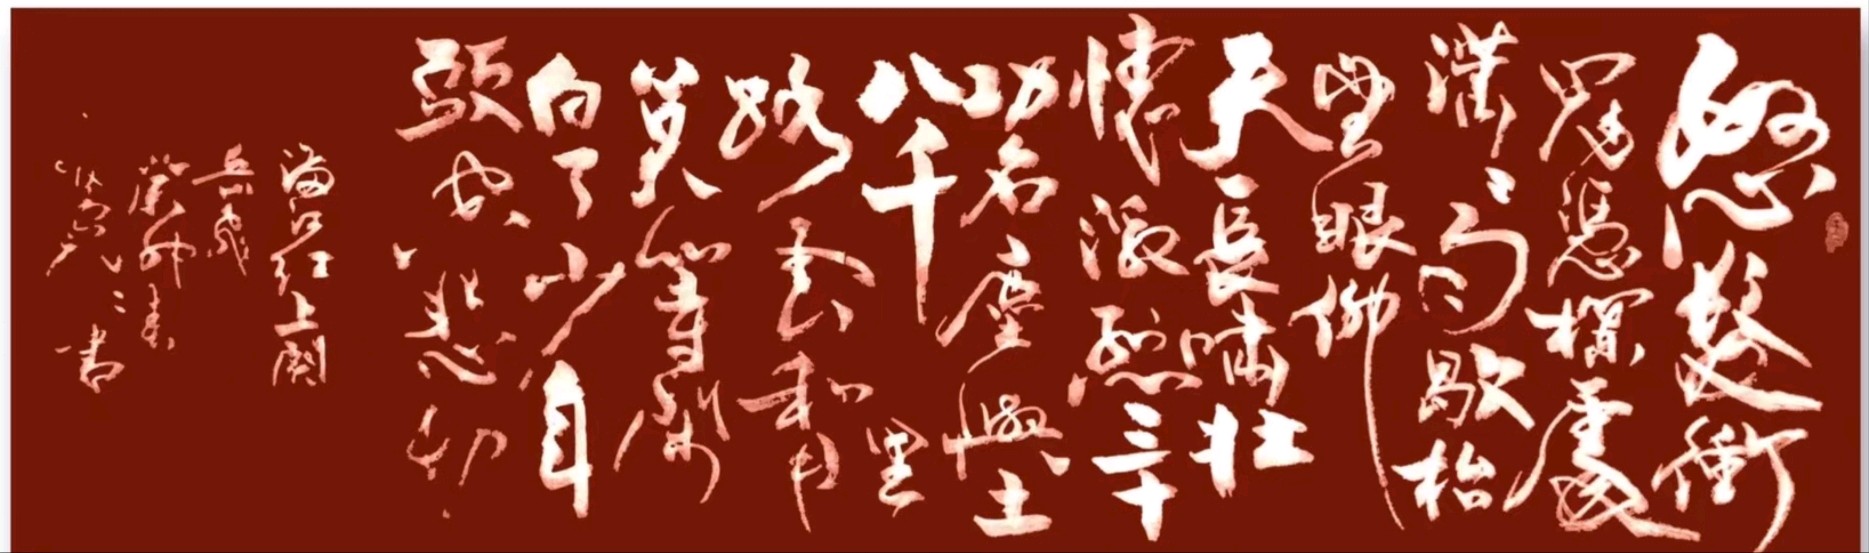 怒髮衝
冠憑欄處
瀟々雨歇抬
望眼仰
天長嘯壯
懷激烈三十
功名塵與土
八千里
路雲和月
莫等閒
白了少年
頭空悲切
滿江红上闋
岳飛
書